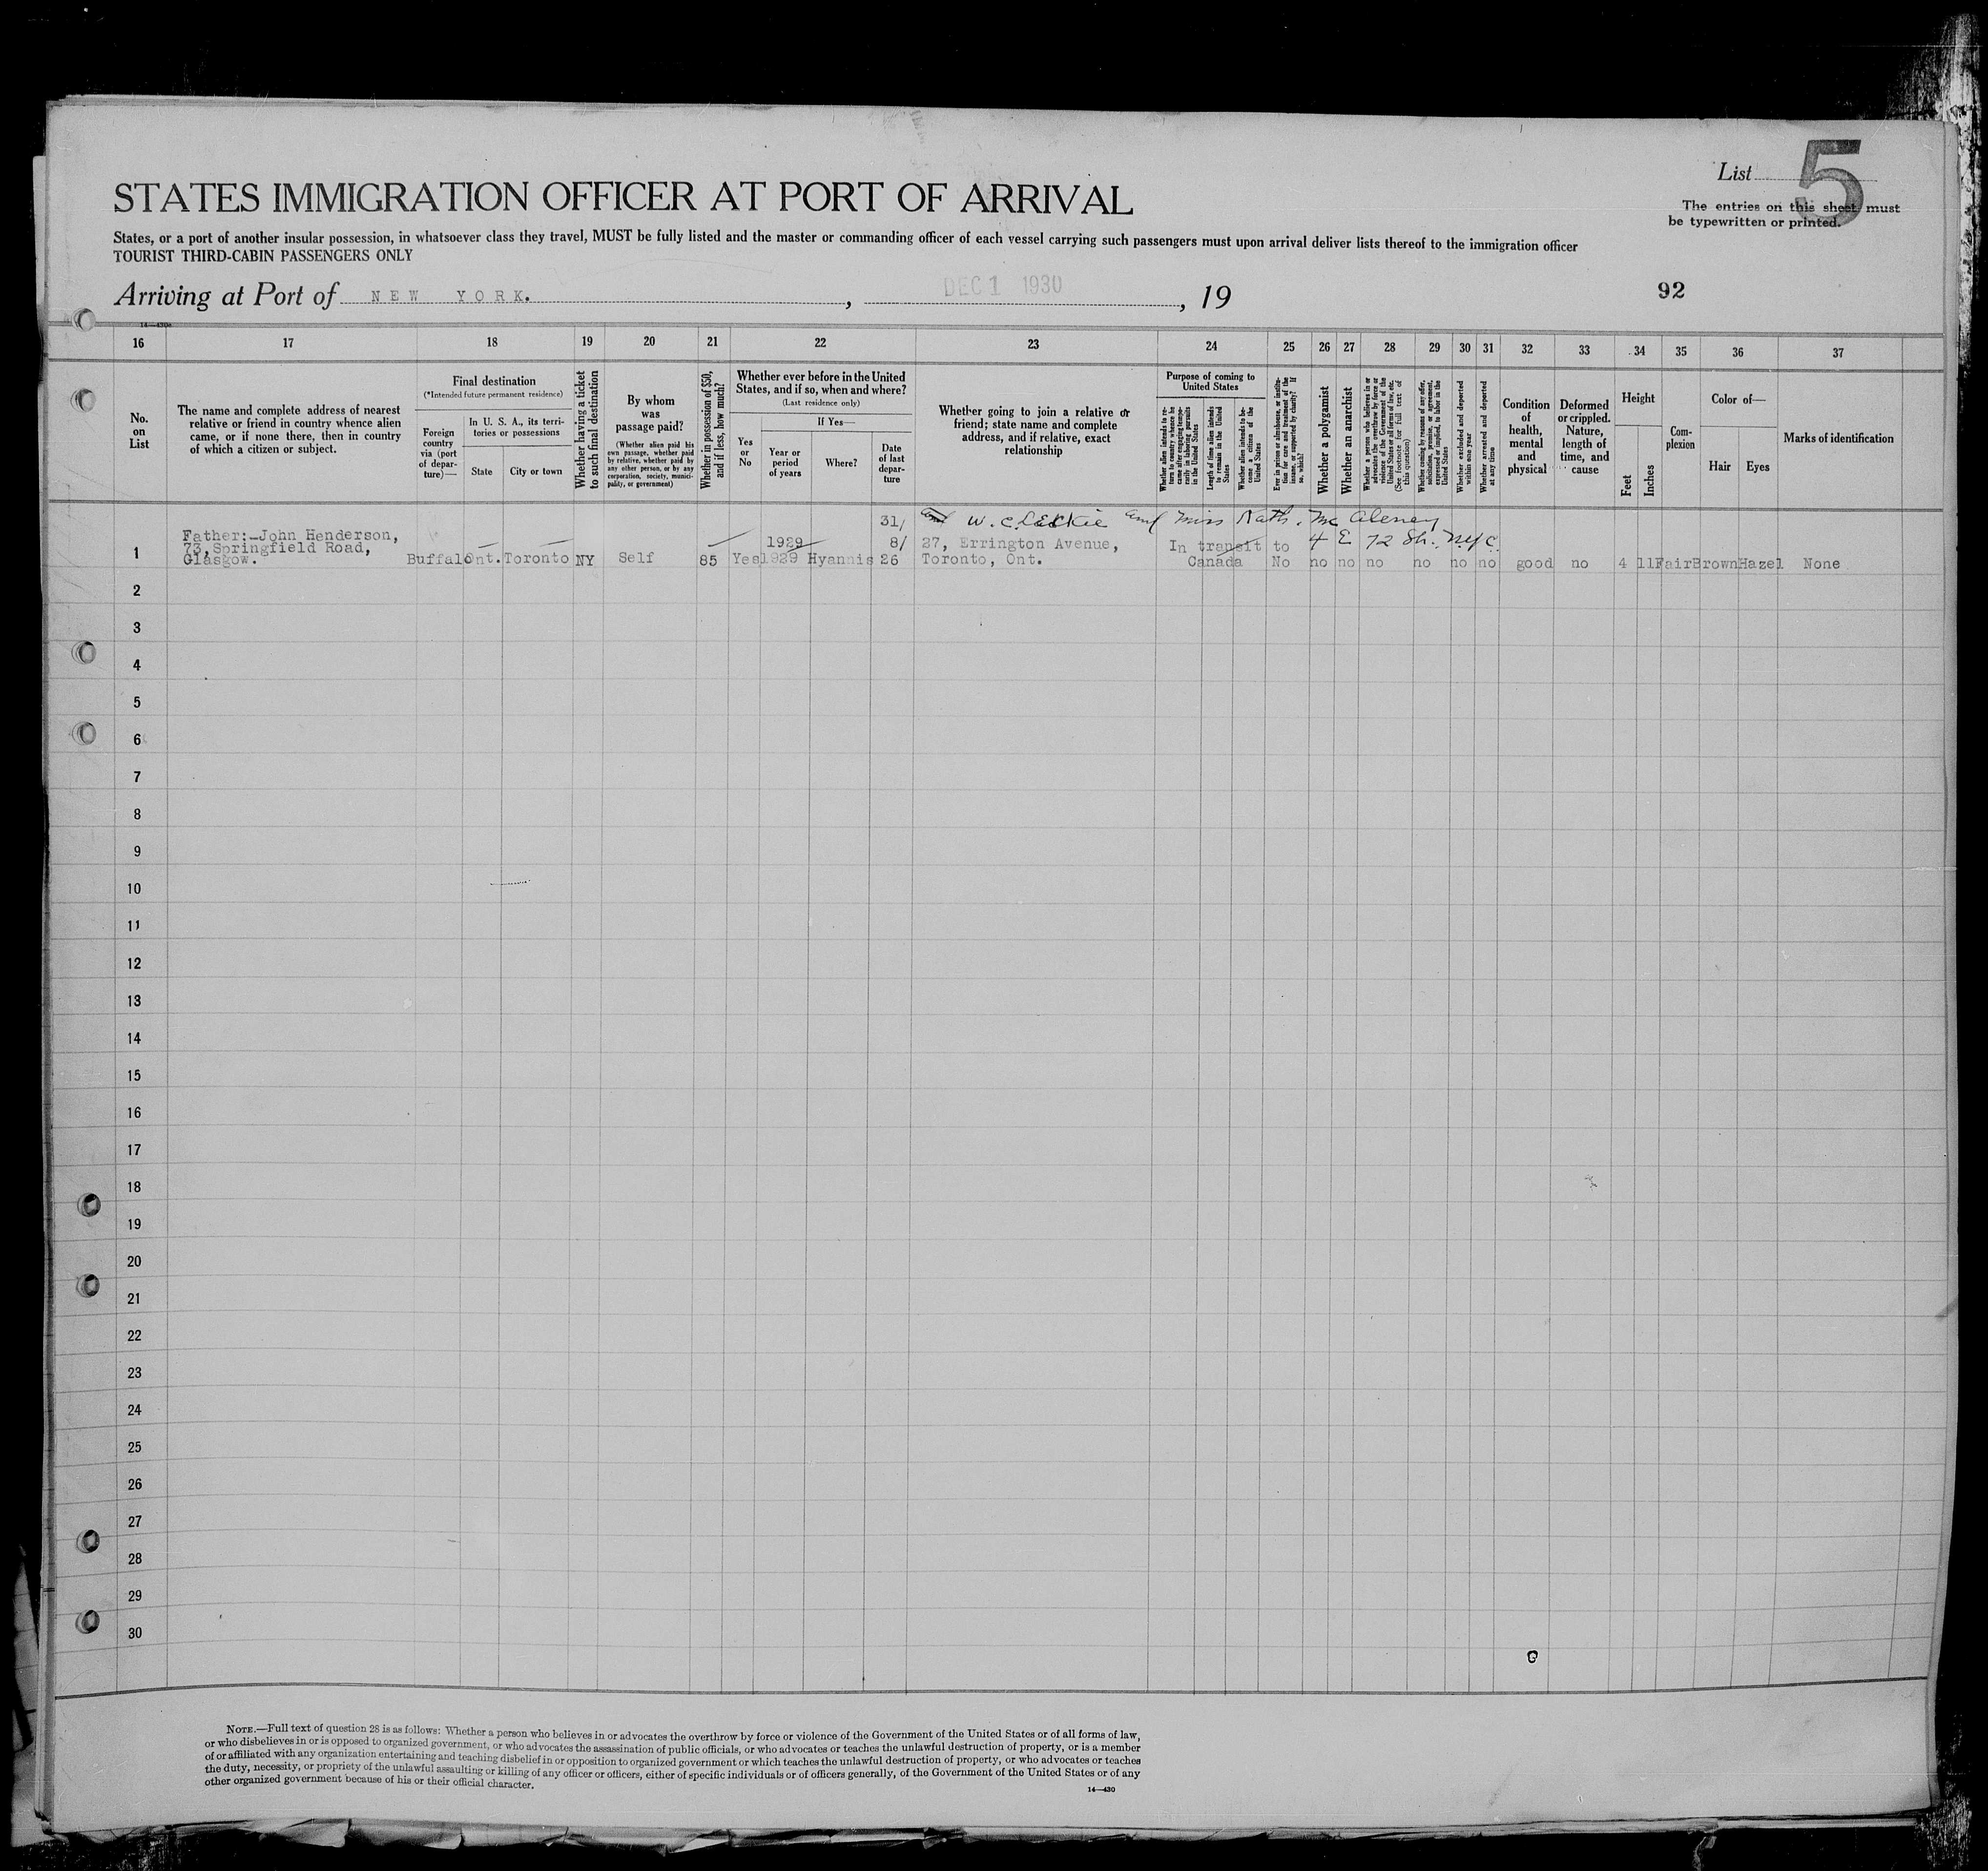 List 5
STATES IMMIGRATION OFFICER AT PORT OF ARRIVAL
The entries on this sheet must
be typewritten or printed.
States, or a port of another insular possession, in whatsoever class they travel, MUST be fully listed and the master or commanding officer of each vessel carrying such passengers must upon arrival deliver lists thereof to the immigration officer
TOURIST THIRD-CABIN PASSENGERS ONLY
Arriving at Port of NEW YORK. , DEC 1 1930 , 19
92
16 17 18 19 20 21 22 23 24 25 26 27 28 29 30 31 32 33 34 35 36 37
No.
on
List
The name and complete address of nearest
relative or friend in country whence alien
came, or if none there, then in country
of which a citizen or subject.
Final destination
(*Intended future permanent residence)
Foreign
country
via (port
of depar-
ture)—
In U. S. A., its terri-
tories or possessions
State
City or town
Whether having a ticket
to such final destination
By whom
was
passage paid?
(Whether alien paid his
own passage, whether paid
by relative, whether paid by
any other person, or by any
corporation, society, munici-
pality, or government)
Whether in possession of $50,
and if less, how much?
Whether ever before in the United
States, and if so, when and where?
(Last residence only)
Yes
or
No
If Yes—
Year or
period
of years
Where?
Date
of last
depar-
ture
Whether going to join a relative or
friend; state name and complete
address, and if relative, exact
relationship
Purpose of coming to
United States
Whether alien intends to re-
turn to country whence he
came after engaging tempo-
rarily in laboring pursuits
in the United States
Length of time alien intends
to remain in the United
States
Whether alien intends to be-
come a citizen of the
United States
Ever in prison or almshouse, or institu-
tion for care and treatment of the
insane, or supported by charity? If
so, which?
Whether a polygamist
Whether an anarchist
Whether a person who believes in or
advocates the overthrow by force or
violence of the Government of the
United States or all forms of law, etc.
(See footnote for full text of
this question)
Whether coming by reasons of any offer,
solicitation, promise, or agreement,
expressed or implied, to labor in the
United States
Whether excluded and deported
within one year
Whether arrested and deported
at any time
Condition
of
health,
mental
and
physical
Deformed
or crippled.
Nature,
length of
time, and
cause
Height
Feet
Inches
Com-
plexion
Color of—
Hair
Eyes
Marks of identification
31/ W. C. Leckie and Miss Kath. Mc Aleney
Father:-John Henderson, 1929 8/ 27, Errington Avenue, In transit to 4 E 72 St. N.Y.C.
73, Springfield Road,
1 Glasgow. Buffalo Ont. Toronto NY Self 85 Yes 1929 Hyannis 26 Toronto, Ont. Canada No no no no no no no good no 4 11 Fair Brown Hazel None
2
3
4
5
6
7
8
9
10
11
12
13
14
15
16
17
18
19
20
21
22
23
24
25
26
27
28
29
30
NOTE.—Full text of question 28 is as follows: Whether a person who believes in or advocates the overthrow by force or violence of the Government of the United States or of all forms of law,
or who disbelieves in or is opposed to organized government, or who advocates the assassination of public officials, or who advocates or teaches the unlawful destruction of property, or is a member
of or affiliated with any organization entertaining and teaching disbelief in or opposition to organized government or which teaches the unlawful destruction of property, or who advocates or teaches
the duty, necessity, or propriety of the unlawful assaulting or killing of any officer or officers, either of specific individuals or of officers generally, of the Government of the United States or of any
other organized government because of his or their official character.
14—430